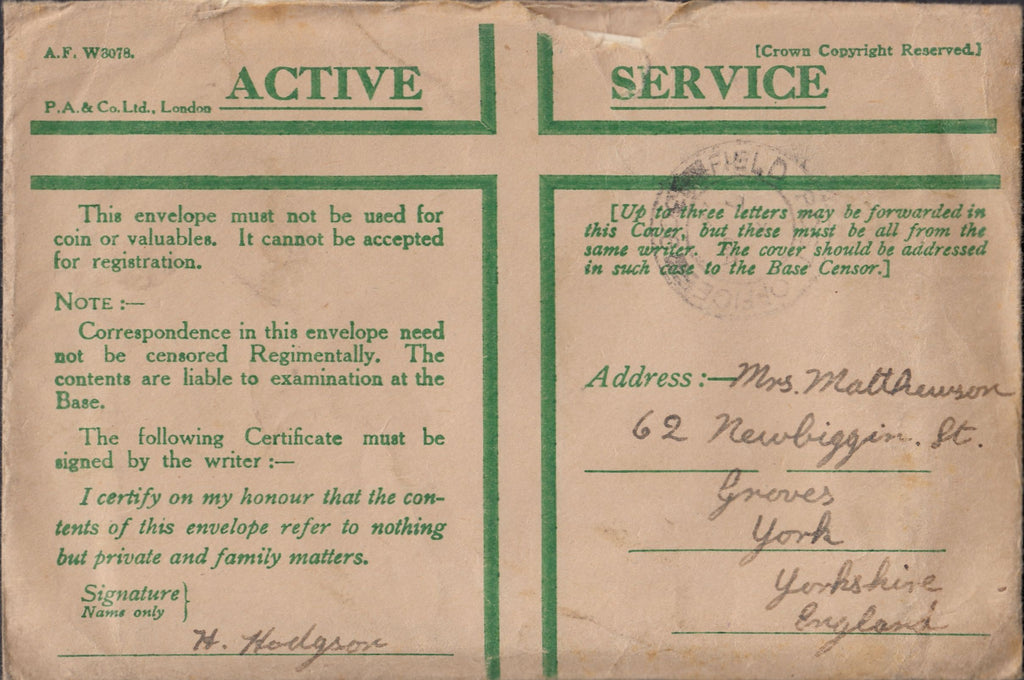 A.F. W3078.
[Crown Copyright Reserved.]
ACTIVE SERVICE
P.A. & Co. Ltd., London
This envelope must not be used for
coin or valuables. It cannot be accepted
for registration.
NOTE :—
Correspondence in this envelope need
not be censored Regimentally. The
contents are liable to examination at the
Base.
The following Certificate must be
signed by the writer :—
I certify on my honour that the con-
tents of this envelope refer to nothing
but private and family matters.
Signature }
Name only
H. Hodgson
FIELD
OFFICE
[Up to three letters may be forwarded in
this Cover, but these must be all from the
same writer. The cover should be addressed
in such case to the Base Censor.]
Address :— Mrs. Matthewson
62 Newbiggin. St.
Groves
York
Yorkshire
England